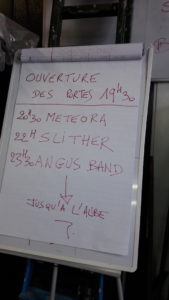 OUVERTURE
DES PORTES 19H30
20H30 METEORA
22H SLITHER
23H30 ANGUS BAND
JUSQU'À L'AUBE
?